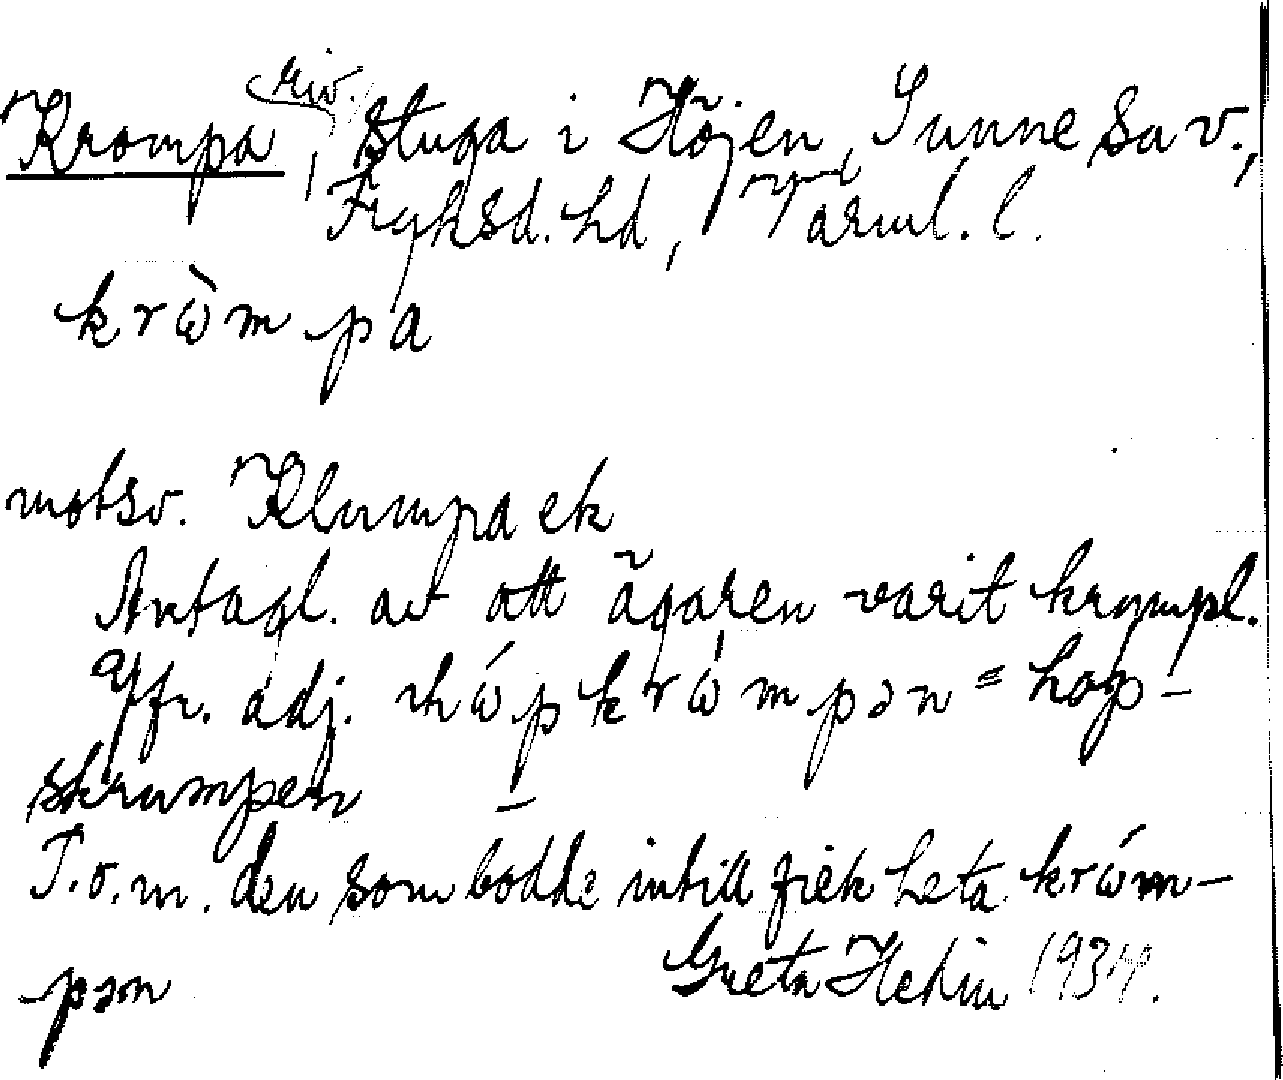 Krompa, riv. stuga i Höjen, Sunne sn v.,
Fryksd. hd, Värml. l.
krὼmpa
motsv. Klumpa ek
Antagl. av att ägaren varit krympl.
Jfr. adj. hώpkrώmpən = hop-
skrumpen
T.o.m. den som bodde intill fick heta krώm-
pən
Greta Hedin 1934.